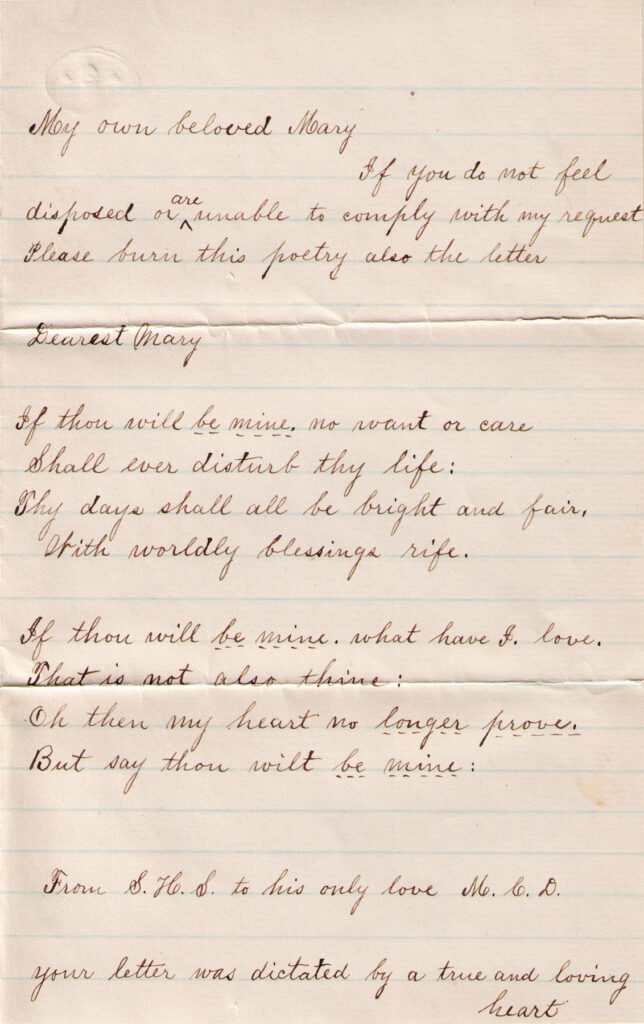 My own beloved Mary
If you do not feel
disposed or are unable to comply with my request
Please burn this poetry also the letter
Dearest Mary
If thou will be mine. no want or care
Shall ever disturb thy life:
Thy days shall all be bright and fair,
With worldly blessings rife.
If thou will be mine. what have I. love.
That is not also thine:
Oh then my heart no longer prove.
But say thou wilt be mine:
From S. H. S. to his only love M. C. D.
your letter was dictated by a true and loving
heart